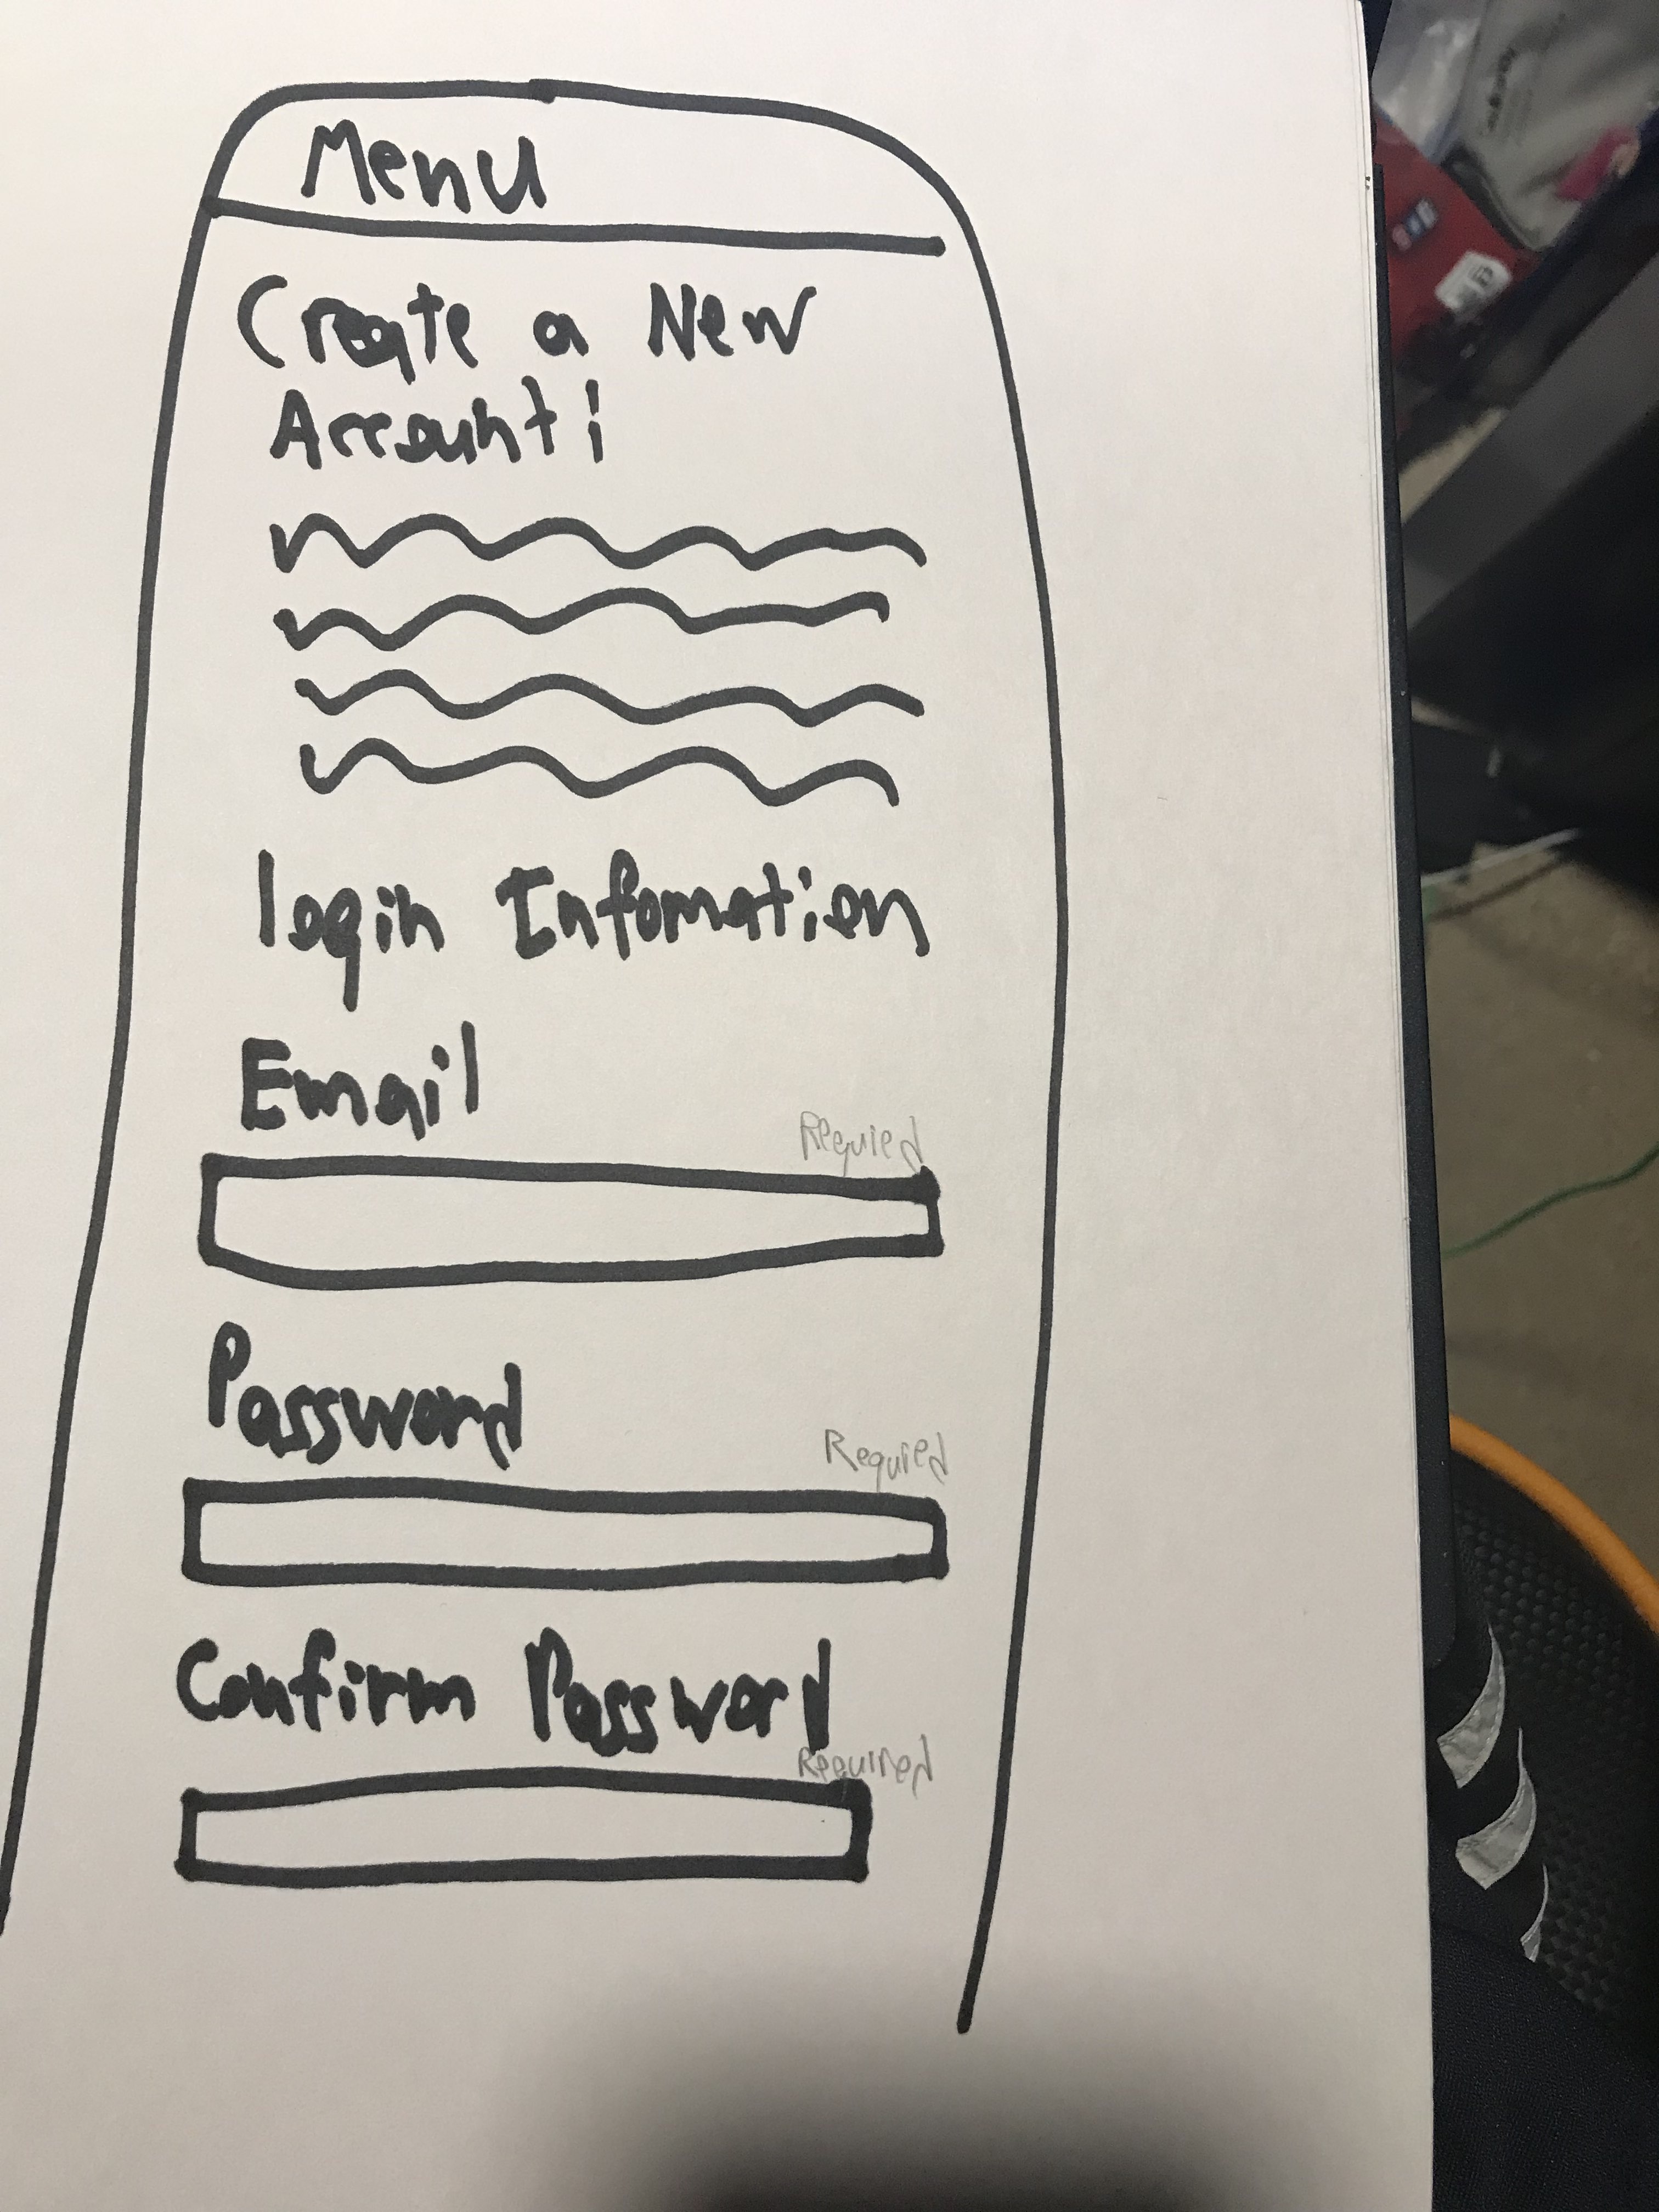 Menu
Create a New
Account:
login Infomation
Email
Requied
Password
Requied
Confirm Password
Required